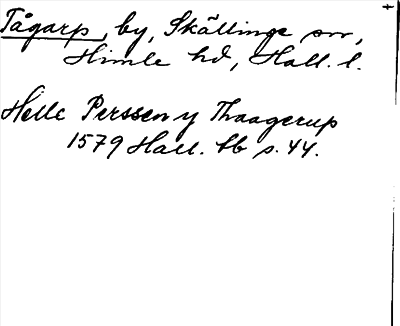 Tågarp, by, Skällinge sn,
Himle hd, Hall. l.
Helle Perssen y Thaagerup
1579 Hall. tb s. 44.